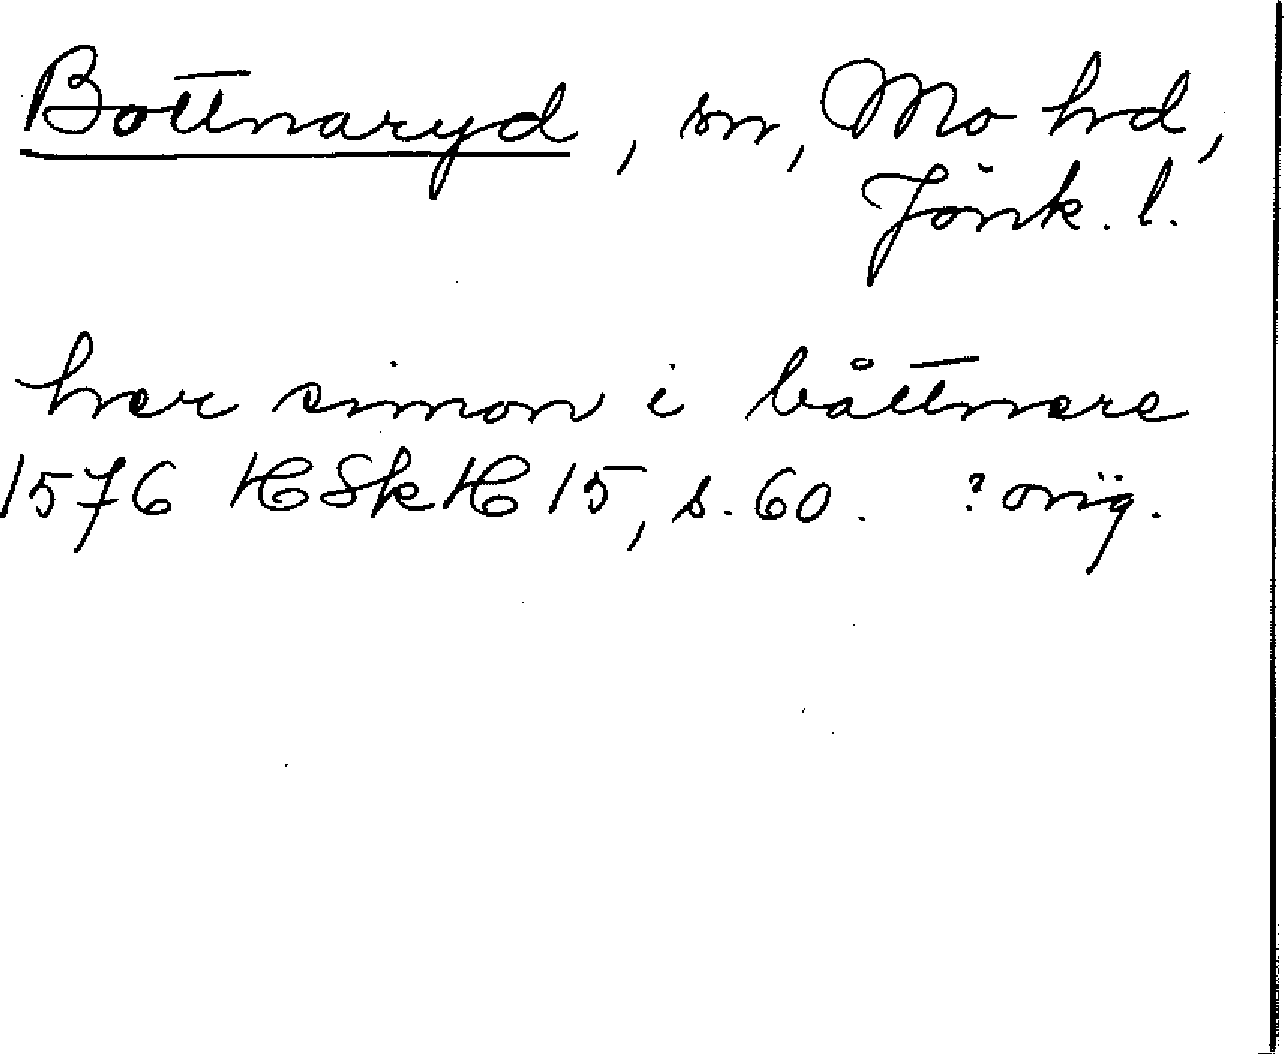 Bottnaryd, sn, Mo hd,
Jönk. l.
her simon i båttnere
1576 HSkH 15, s. 60. ? orig.